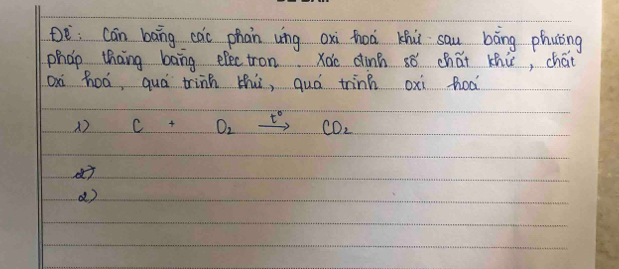 Đề: Cân bằng các phản ứng oxi hoá khử sau bằng phương
pháp thăng bằng electron. Xác định số chất khử, chất
oxi hoá, quá trình khử, quá trình oxi hoá
1) C + O₂ →t° CO₂
2)
2)